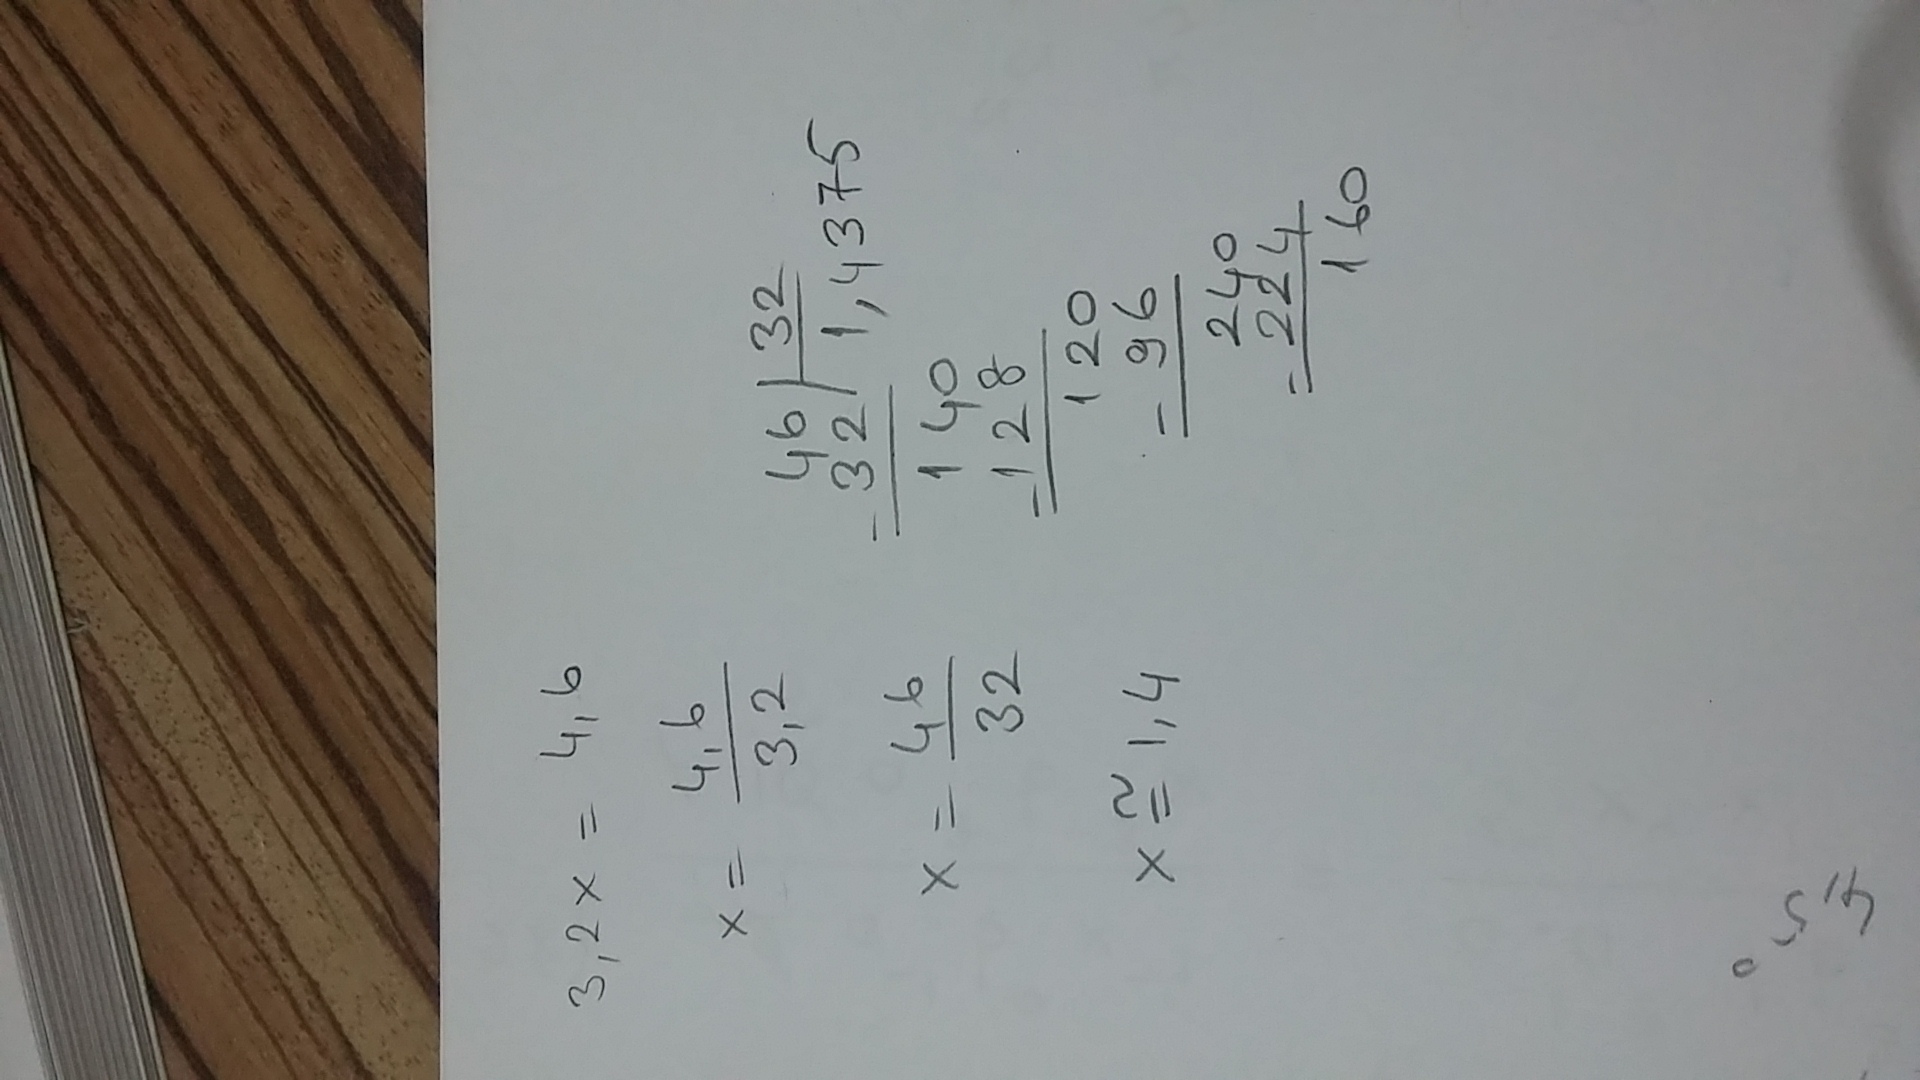 3,2x = 4,6
x = 4,6 / 3,2
x = 46 / 32
x ≅ 1,4
46 | 32
- 32 | 1,4375
140
- 128
120
- 96
240
- 224
160